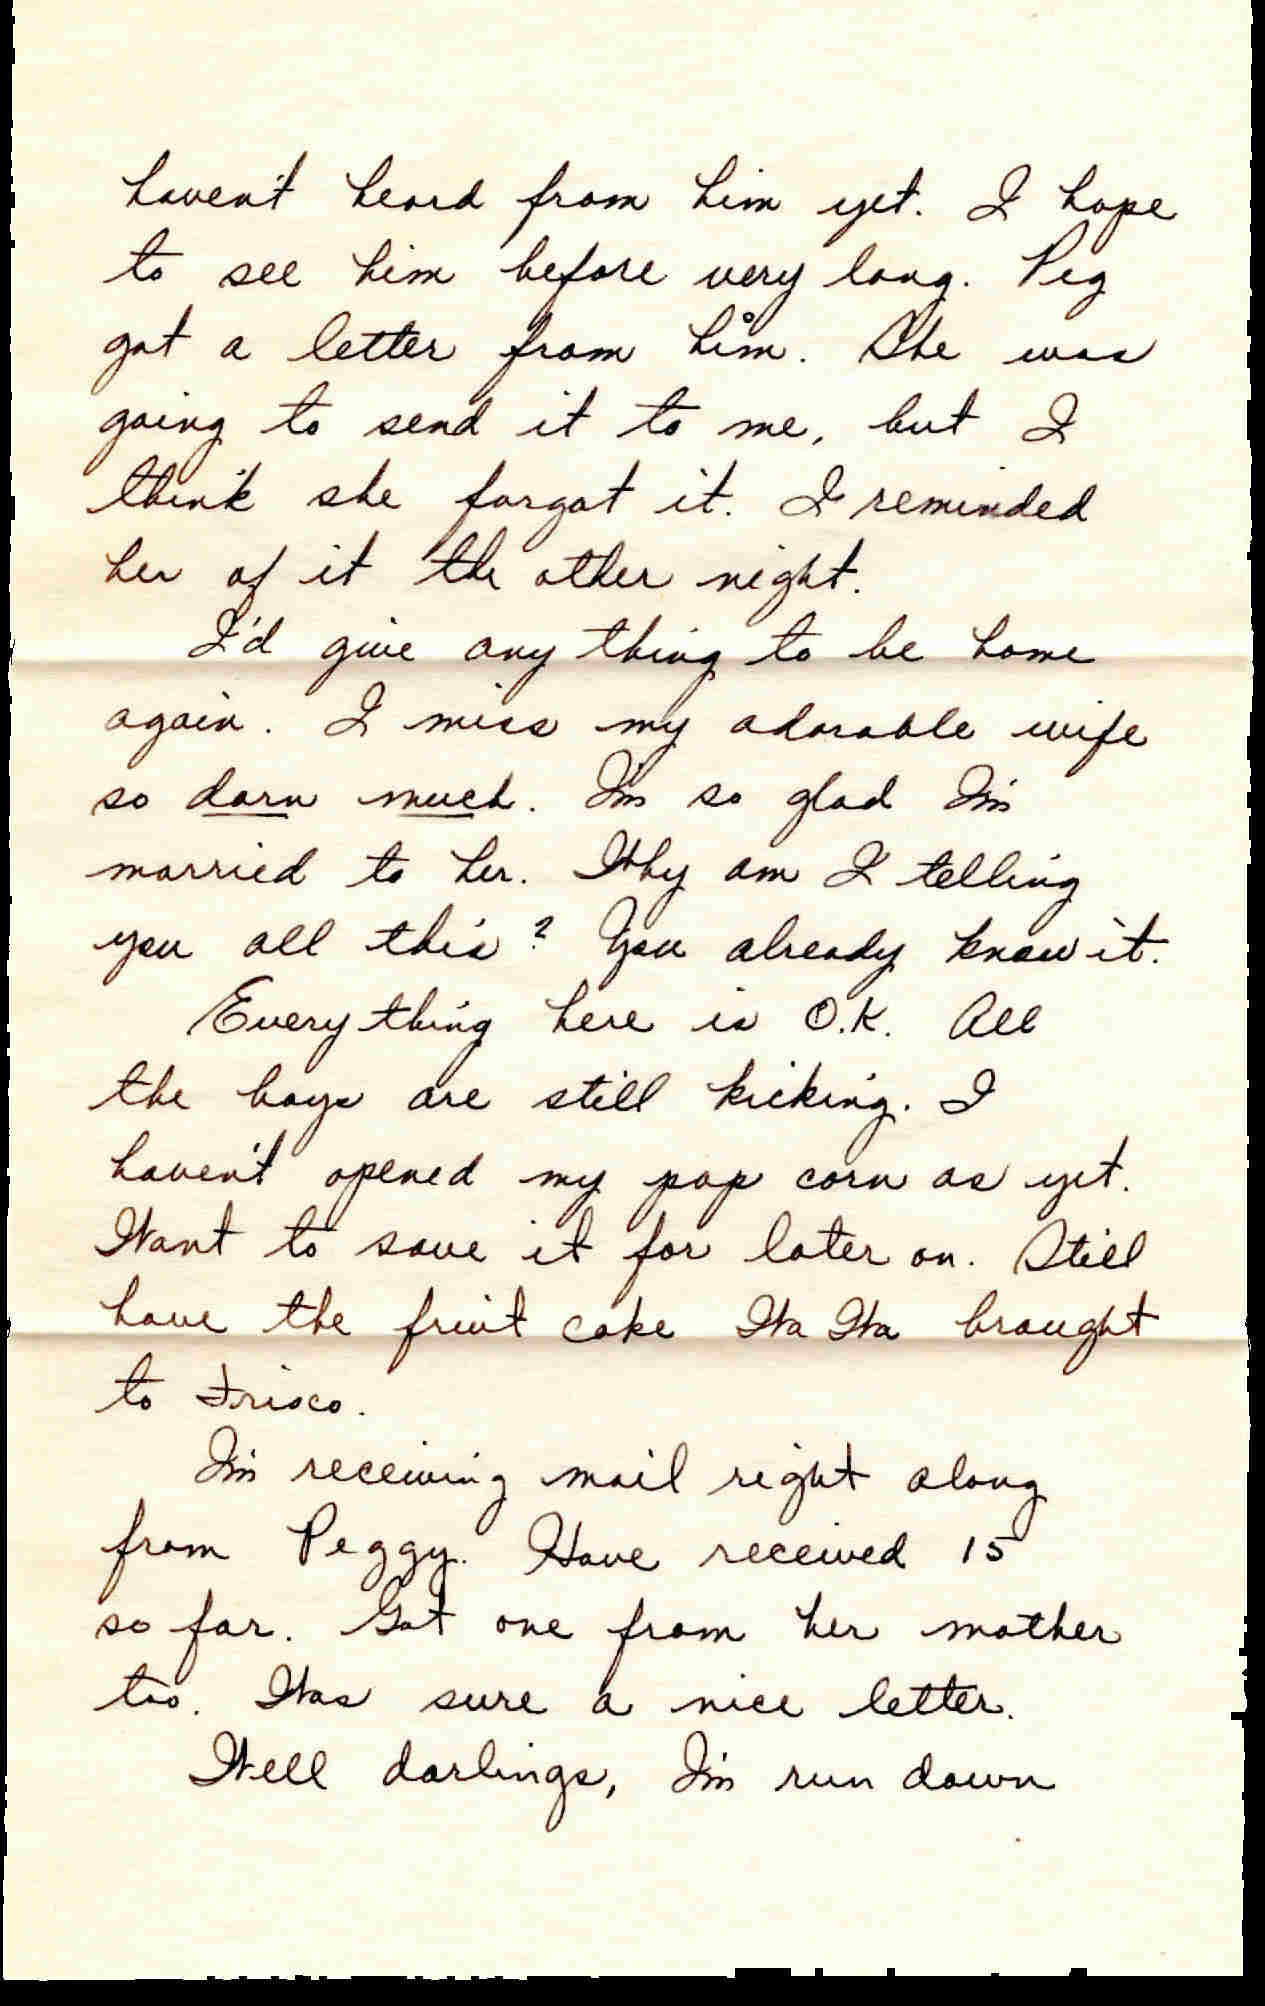 haven't heard from him yet. I hope
to see him before very long. Peg
got a letter from him. She was
going to send it to me, but I
think she forgot it. I reminded
her of it the other night.
I'd give any thing to be home
again. I miss my adorable wife
so darn much. I'm so glad I'm
married to her. Why am I telling
you all this? You already know it.
Every thing here is O.K. All
the boys are still kicking. I
haven't opened my pop corn as yet.
Want to save it for later on. Still
have the fruit cake Wa Wa brought
to Frisco.
I'm receiving mail right along
from Peggy. Have received 15
so far. Got one from her mother
too. Was sure a nice letter.
Well darlings, I'm run down